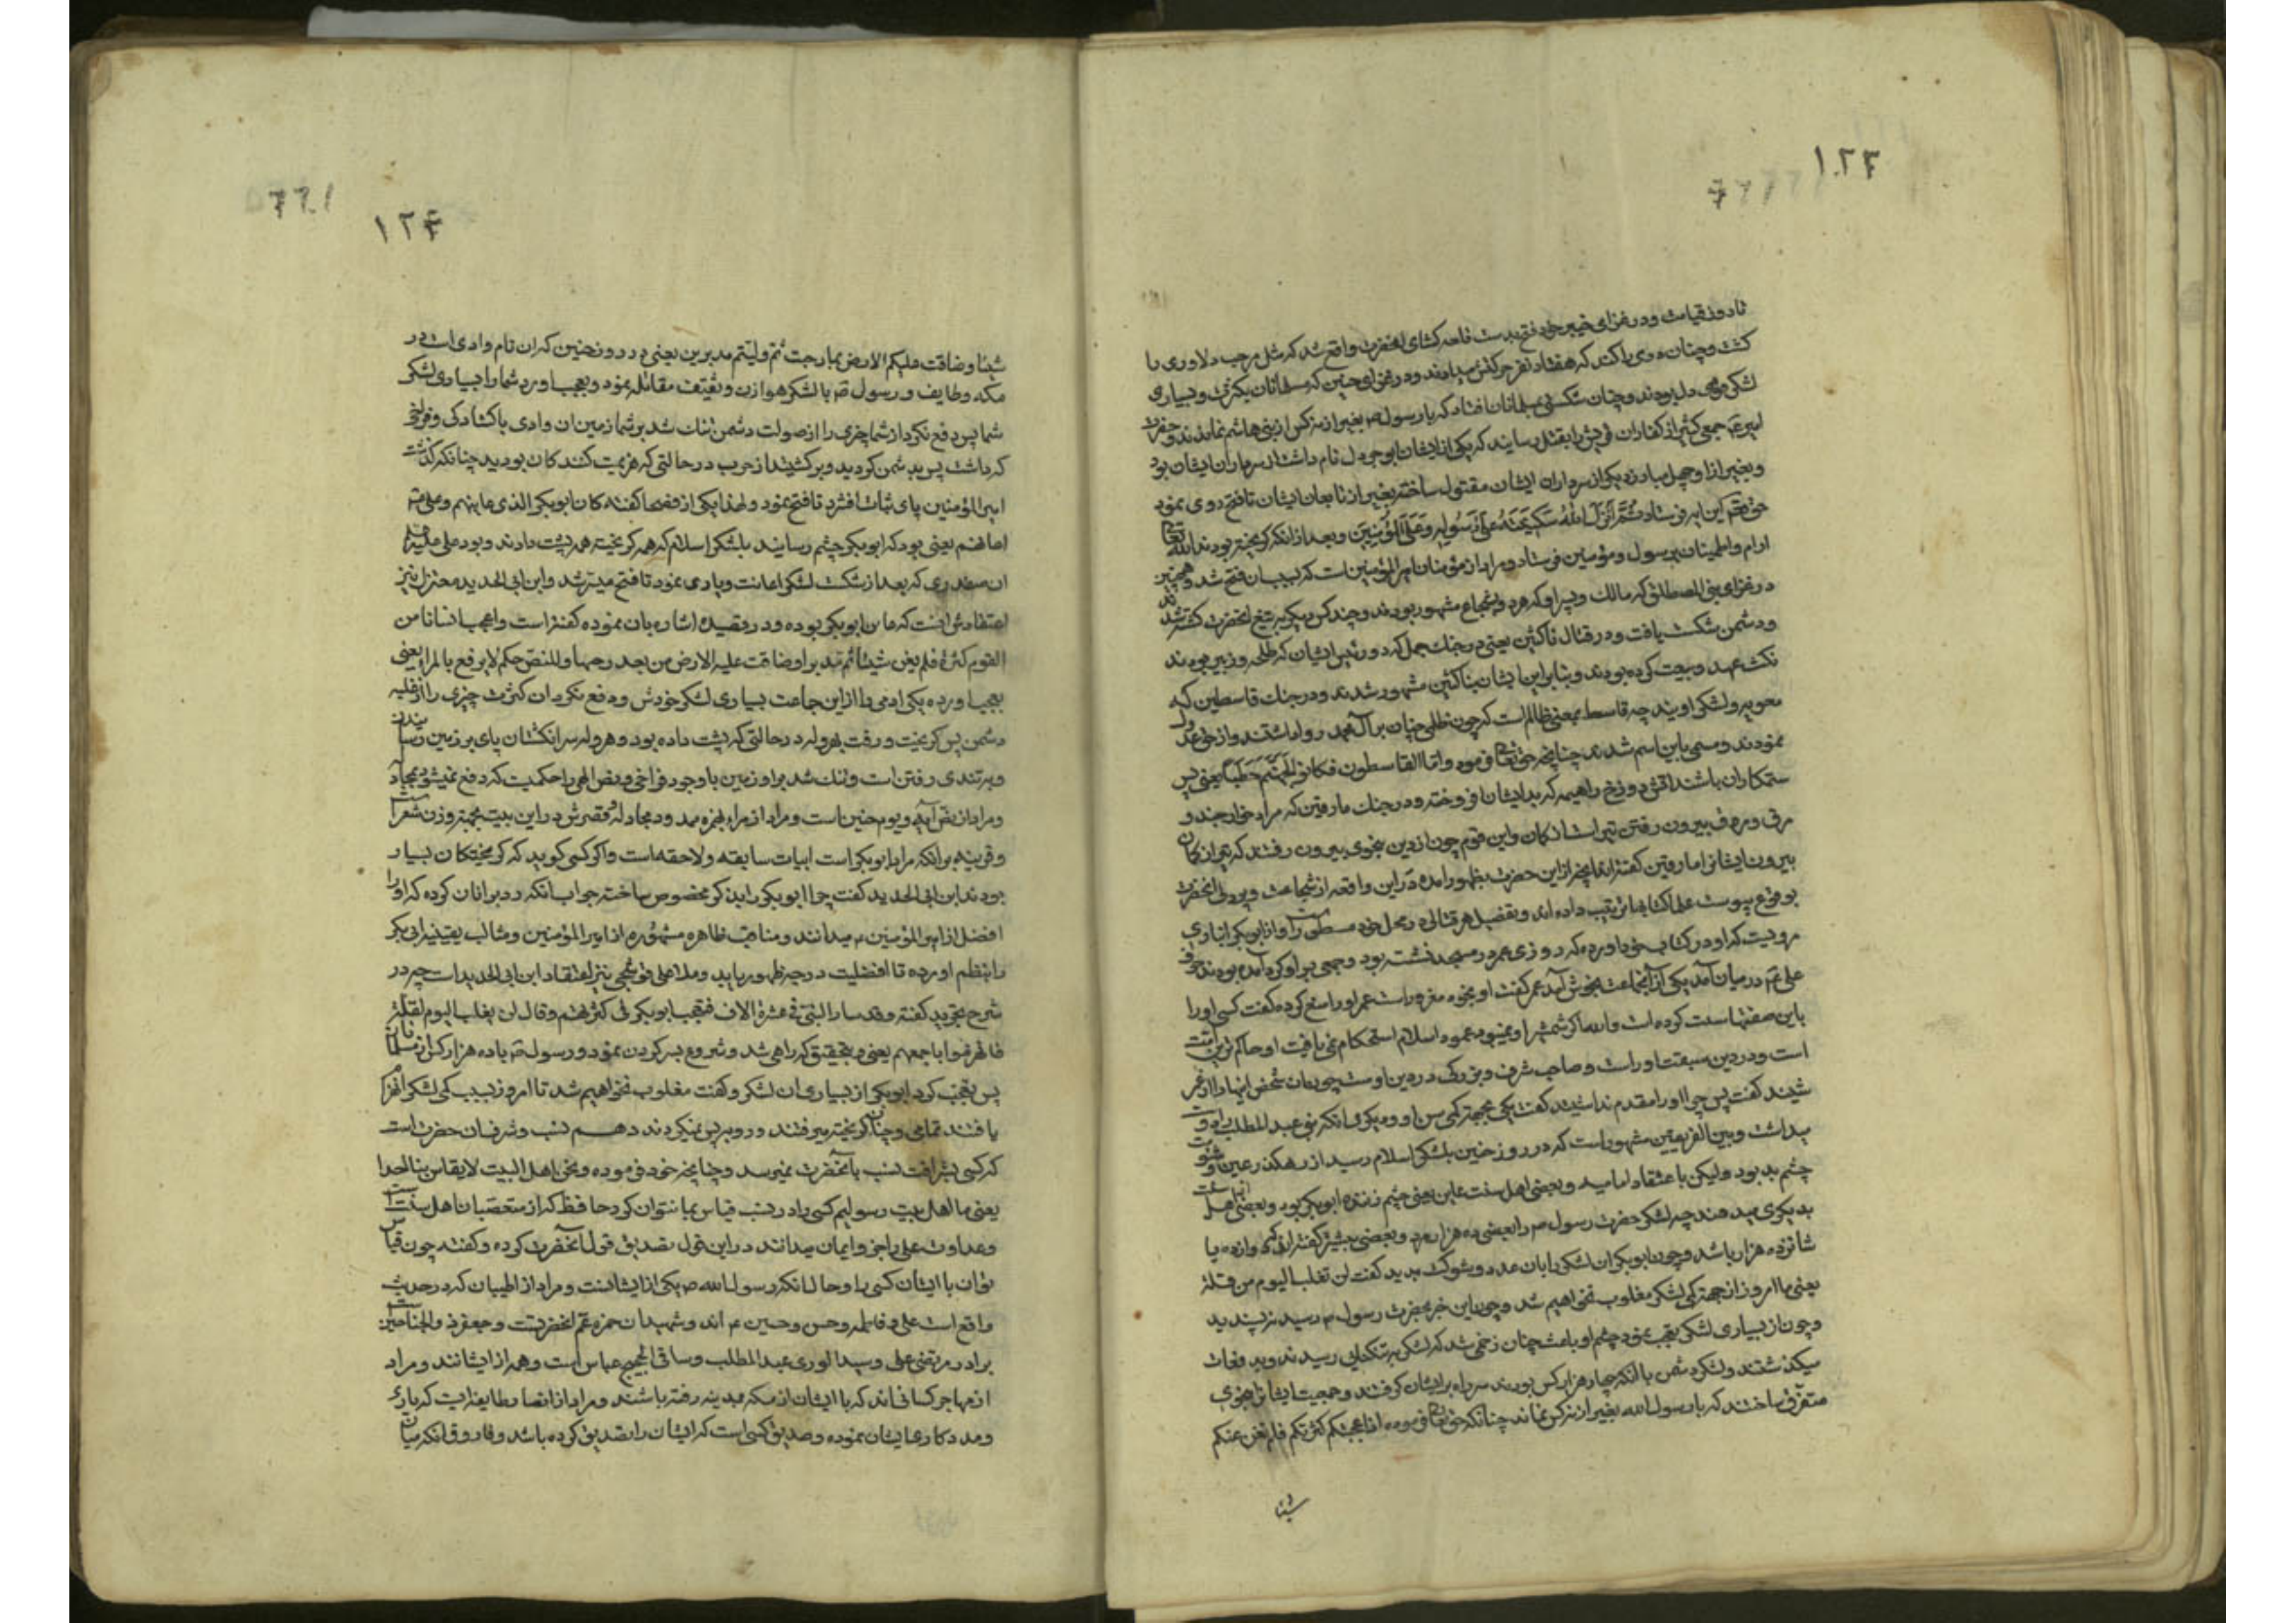 ۱۲۴
تا روز قیامت و در غزای خیبر خود فتح بدست قلعه کشای آنحضرت واقع شد که مثل مرحب دلاوری را
کشت و چنان دری را کند که هفتاد نفر حرکتش میدادند و در غزای حنین که مسلمانان بکثرت و بسیاری
لشکر دل بودند و چنان شکستی بمسلمانان افتاد که با رسول ص بغیر از نه کس از بنی هاشم نماندند و حضرت
امیر ع جمعی کثیر از کفاران قریش را بقتل رسانید که یکی از ایشان ابوجرول نام داشت از سرداران ایشان بود
و بغیر از او چهل مبارز دیگر از سرداران ایشان مقتول ساخته بغیر از تابعان ایشان تا فتح روی نمود
حق تعالی این آیه فرستاد ثُمَّ اَنْزَلَ اللهُ سَكينَتَهُ عَلى رَسُولِهِ وَعَلَى الْمُؤْمِنينَ و بعد از آنکه گریخته بودند الله تعالی
ارام و اطمینان بر رسول و مؤمنین فرستاد و مراد از مؤمنان امیر المؤمنین است که بسبب آن فتح شد و همچنین
در غزای بنی المصطلق که مالک و پسر او که هر دو بشجاع مشهور بودند و چند کس دیگر به تیغ آنحضرت کشته شدند
و دشمن شکست یافت و در قتال ناکثین یعنی در جنک جمل که دو رئیس ایشان که طلحه و زبیر بودند
نکث عهد و بیعت کرده بودند و بنا بر این ایشان بناکثین مشهور شدند و در جنک قاسطین که
معویه و لشکر اویند چه قاسط بمعنی ظالم است که چون ظلمی چنان بر آل محمد روا داشتند و از حق عدول
نمودند و مسمی باین اسم شدند چنانچه حق تعالی فرمود و اما القاسطون فکانوا لجهنم حطبا یعنی پس
ستمکاران باشند آتش دوزخ را هیمه که بدایشان افروخته و در جنک مارقین که مراد خوارجند و
مرق و مروق بیرون رفتن تیر است از کمان و این قوم چون از دین بنحوی بیرون رفتند که تیر از کمان
بیرون ایشانرا مارقین گفته‌اند آنچه از این حضرت بظهور آمده در این واقعه از شجاعت و پردلی آنحضرت
بوقوع پیوست علما کتابها ترتیب داده اند و تفصیل هر قتالی در محل خود مسطور است و از ابوبکر انباری
مرویست که او در کتاب خود آورده که روزی عمر در مسجد نشسته بود و جمعی بر او گرد آمده بودند حرف
علی ع در میان آمد یکی از آنجماعت بخوش آمد عمر گفت او بخود مغرور است عمر او را منع کرده گفت کسی او را
باین صفتها سست کرده است والله اگر شمشیر او نمیبود عمود اسلام استحکام نمی یافت او حاکم ترین امت
است و در دین سبقت اوراست و صاحب شرف و بزرگی در دین اوست چون آن شخص اینها را از عمر
شنید گفت پس چرا او را مقدم نداشتید گفت یکی بجهة کمی سن او و دیگر آنکه بنی عبد المطلب را دوست
میداشت و بین الفریقین مشهور است که در روز حنین بلشکر اسلام رسید از رهگذر عین و شومی
چشم بد بود و لیکن باعتقاد امامیه و بعضی اهل سنت عاین یعنی چشم زننده ابوبکر بود و بعضی اهل سنت
بدیگری میدهند چه لشکر حضرت رسول ص را بعضی ده هزار مرد و بعضی بیشتر گفته اند دوازده یا
شانزده هزار باشد و چون ابوبکر آن لشکر را بآن عدد و شوکت بدید گفت لن نغلب الیوم من قلة
یعنی ما امروز از جهة کمی لشکر مغلوب نخواهیم شد و چون این خبر بحضرت رسول ص رسید نپسندید
و چون از بسیاری لشکر تعجب نمود چشم او باعث چنان زخمی شد که لشکر به تنکنایی رسیدند و بدفعات
میکذشتند و لشکر دشمن با آنکه چهار هزار کس بودند سر راه بر ایشان گرفتند و جمعیت ایشانرا بنحوی
متفرق ساختند که با رسول الله بغیر از نه کس نماند چنانکه حق تعالی فرموده اذ اعجبتکم کثرتکم فلم تغن عنکم
شیئا
۱۲۴
شیئا و ضاقت علیکم الارض بما رحبت ثم ولیتم مدبرین یعنی و در روز حنین که آن نام وادی است در
مکه و طایف و رسول ص با لشکر هوازن و ثقیف مقاتله نمود و بعجب اورد شما را بسیاری لشکر
شما پس دفع نکرد از شما چیزی را از صولت دشمن و تنک شد بر شما زمین آن وادی با گشادگی و فراخی
که داشت پس بدشمن کردید و برگشتید از حرب در حالتی که هزیمت کنندگان بودید چنانکه گذشت
امیر المؤمنین پای ثبات افشرد تا فتح نمود و لهذا یکی از فصحا گفته کان ابوبکر الذی عاینهم و علی
اعانهم یعنی بود که ابوبکر چشم رسانید بلشکر اسلام که همه گریخته همه پشت دادند و بود علی علیه السلام
آن صفدری که بعد از شکست لشکر اعانت و یاری نمود تا فتح میسر شد و ابن ابی الحدید معتزلی نیز
اعتقادش آنست که عاین ابوبکر بوده و در قصیده اشاره بآن نموده گفته است و اعجب انسانا من
القوم کثرة فلم یغن شیئا ثم هرول مدبرا و ضاقت علیه الارض من بعد رحبها و للنص حکم لا یرفع بالمرا یعنی
بعجب اورده یکی ادمی را از این جماعت بسیاری لشکر خودش و دفع نکرد آن کثرت چیزی را از غلبه
دشمن پس گریخت و رفت بهروله در حالتی که پشت داده بود و هروله سر انکشتان پای بر زمین رسانیدن
و بر تندی رفتن است و تنک شد بر او زمین با وجود فراخی و نص الهی را حکمیست که دفع نمیشود بمجادله
و مراد از نص آیه و یوم حنین است و مراد از مراء بهمزه ممدود مجادله و قصرش در این بیت بجهة وزن شعر است
و قرینه بر آنکه مراد ابوبکر است ابیات سابقه و لاحقه است و اگر کسی کوید که گریختگان بسیار
بودند ابن ابی الحدید گفت چرا ابوبکر را بذکر مخصوص ساخته جواب آنکه رد بر آنان کرده که او را
افضل از امیر المؤمنین ع میدانند و مناقب ظاهره مشهوره از امیر المؤمنین و مثالب یقینیه ابی بکر
را بنظم اورده تا افضلیت درجه ظهور یابد و ملا علی قوشجی نیز باعتقاد ابن ابی الحدید است چه در
شرح تجرید گفته و قد سار النبی فی عشرة الاف فتعجب ابوبکر فی کثرتهم و قال لن نغلب الیوم لقلة
فانهزموا باجمعهم یعنی بتحقیق که راهی شد و شروع بسیر کردن نمود رسول ص با ده هزار کس از مسلمانان
پس تعجب کرد ابوبکر از بسیاری آن لشکر و گفت مغلوب نخواهیم شد تا امروز بسبب کمی لشکر
یافتند تمامی و چنان گریخته میرفتند و رو بر پس نمیکردند دهم نسب و شرف آن حضرت است
که کسی بشرافت نسب بآنحضرت نمیرسد و چنانچه خود فرموده و نحن اهل البیت لا یقاس بنا احدا
یعنی ما اهل بیت رسولیم کسی را در نسب قیاس بما نتوان کرد حافظ که از متعصبان اهل سنت است
و عداوت علی را جزو ایمان میدانند در این قول تصدیق قول آنحضرت کرده و گفته چون قیاس
توان با ایشان کسی را و حال آنکه رسول الله ص یکی از ایشانست و مراد از اطیبان که در حدیث
واقع است علی و فاطمه و حسن و حسین ع اند و شهیدان حمزه عم آنحضرتست و جعفر ذو الجناحین
برادر مرتضی علی و سید الوری عبد المطلب و ساقی الحجیج عباس است و همه از ایشانند و مراد
از مهاجر کسانی اند که با ایشان از مکه بمدینه رفته باشند و مراد از انصار طایفه ایست که یاری
و مددکاری ایشان نموده و صدیق کسی است که ایشان را تصدیق کرده باشد و فاروق آنکه میان